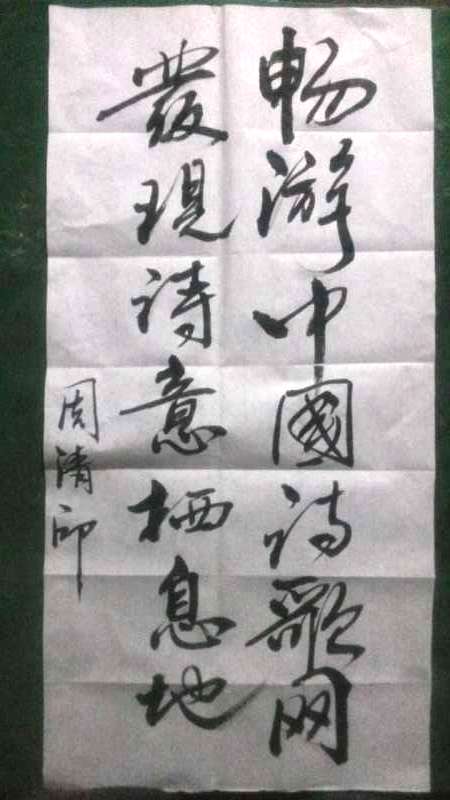 畅游中國诗歌网
發現詩意栖息地
周清印